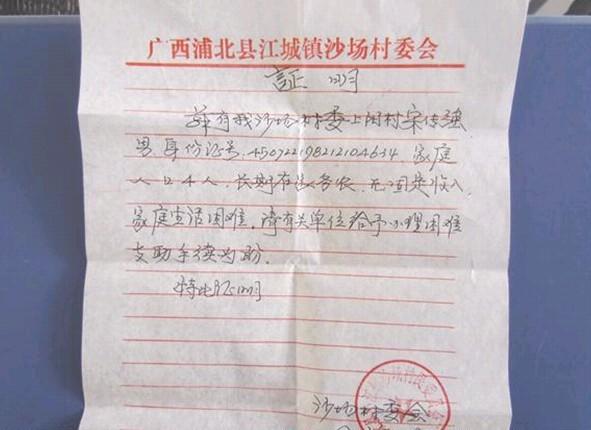 广西浦北县江城镇沙场村委会
证 明
兹有我沙场村委上闸村宋传强
男,身份证号,450722198212104634,家庭
人口4人,长期在家务农,无固定收入,
家庭生活困难,请有关单位给予办理困难
支助手续为盼.
特此证明
沙场村委会